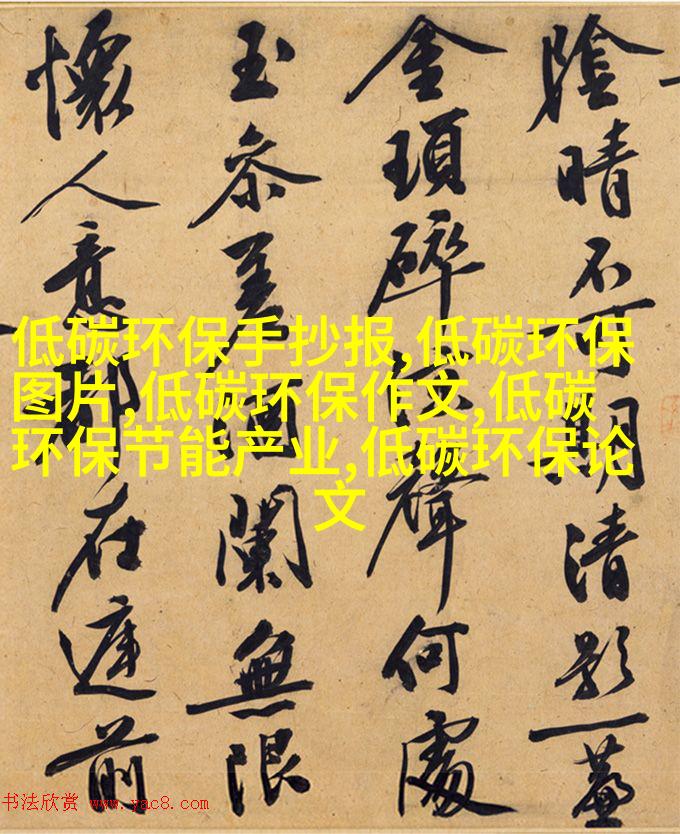 陰晴不可期清影一簾
金瑣碎溪聲何處
玉參差酒闌無限
懷人意都在庭前
低碳环保手抄报,低碳环保
图片,低碳环保作文,低碳
环保节能产业,低碳环保论
文
书法欣赏 www.yac8.com